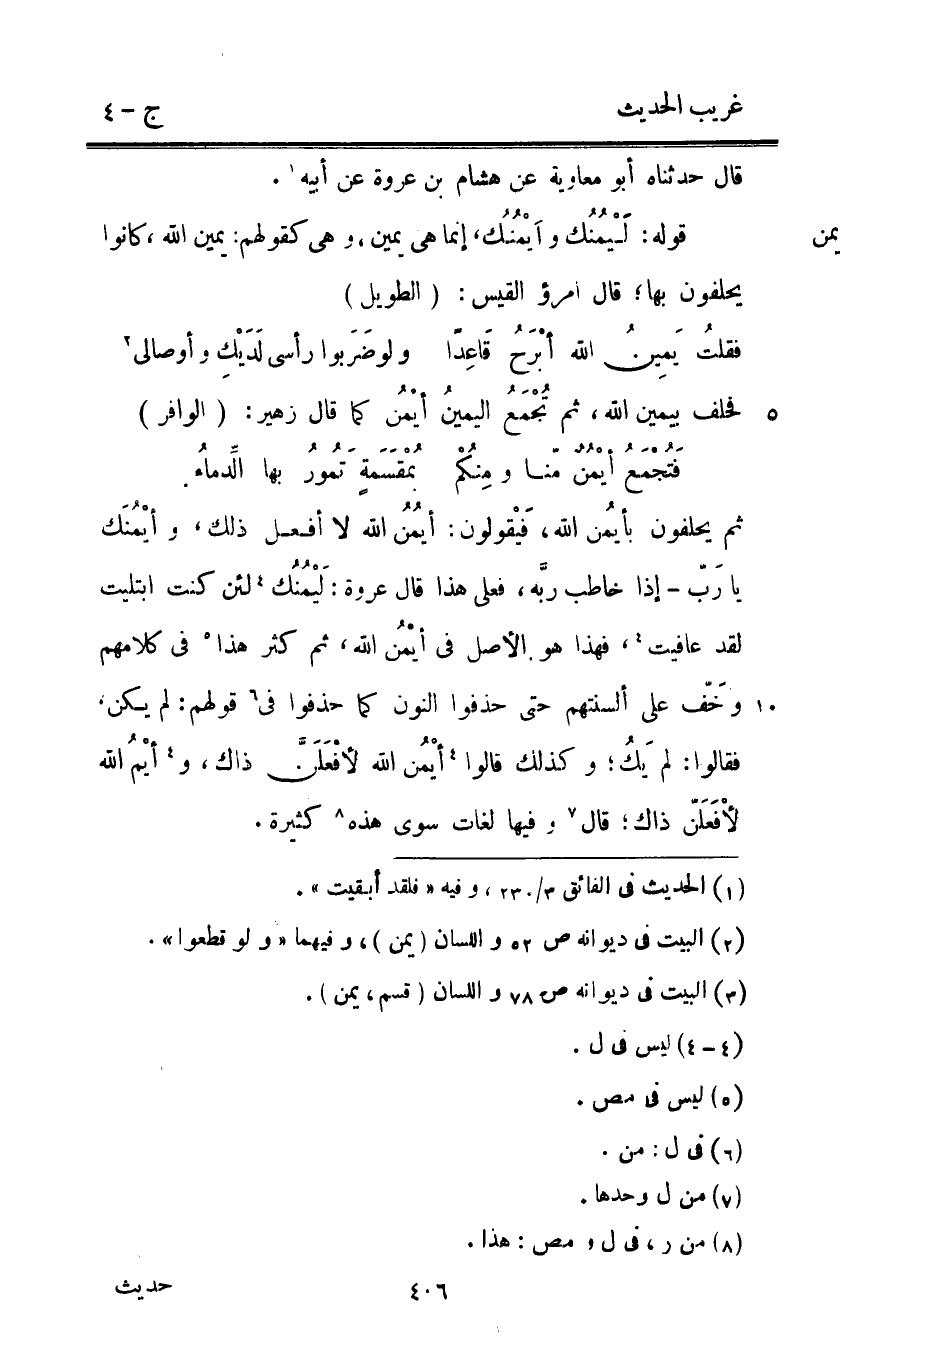 غريب الحديث ج - ٤
قال حدثناه أبو معاوية عن هشام بن عروة عن أبيه ١ .
يمن قوله: لَيْمُنُك و اَيْمُنُك، إنما هى يمين، و هى كقولهم: يمين الله، كانوا
يحلفون بها؛ قال امرؤ القيس: ( الطويل )
فقلتُ يَمِينُ الله أَبْرَحُ قَاعِدًا و لو ضَرَبوا رأسى لَدَيْكِ و أوصالى ٢
٥ فحلف بيمين الله، ثم تُجْمَعُ اليمينُ أَيْمُن كما قال زهير: ( الوافر )
فَتُجْمَعُ أَيْمُنٌ مّنَّا و مِنكُمْ بمُقْسَمَةٍ تَمُورُ بها الدّماءُ
ثم يحلفون بأيمُن الله، فَيْقولون: أيمُنُ الله لا أفعل ذلك، و أَيْمُنَك
يا رَبّ - إذا خاطب ربَّه، فعلى هذا قال عروة: لَيْمُنُك ٤ لئن كنت ابتليت
لقد عافيت ٤، فهذا هو الأصل فى أَيْمُن الله، ثم كثر هذا ٥ فى كلامهم
١٠ و خَفّ على ألسنتهم حتى حذفوا النون كما حذفوا فى ٦ قولهم: لم يكن،
فقالوا: لم يَكُ؛ و كذلك قالوا ٤ أَيْمُن الله لأَفْعَلَنَّ ذاك، و ٤ أَيْمُ الله
لأَفْعَلَنّ ذاك؛ قال ٧ و فيها لغات سوى هذه ٨ كثيرة .
(١) الحديث فى الفائق ٣/٢٣٠، و فيه « فلقد أبقيت » .
(٢) البيت فى ديوانه ص ٥٢ و اللسان ( يمن )، و فيهما « و لو قطعوا » .
(٣) البيت فى ديوانه ص ٧٨ و اللسان ( قسم، يمن ) .
(٤ - ٤) ليس فى ل .
(٥) ليس فى مص .
(٦) فى ل: من .
(٧) من ل وحدها .
(٨) من ر، فى ل و مص: هذا .
٤٠٦ حديث